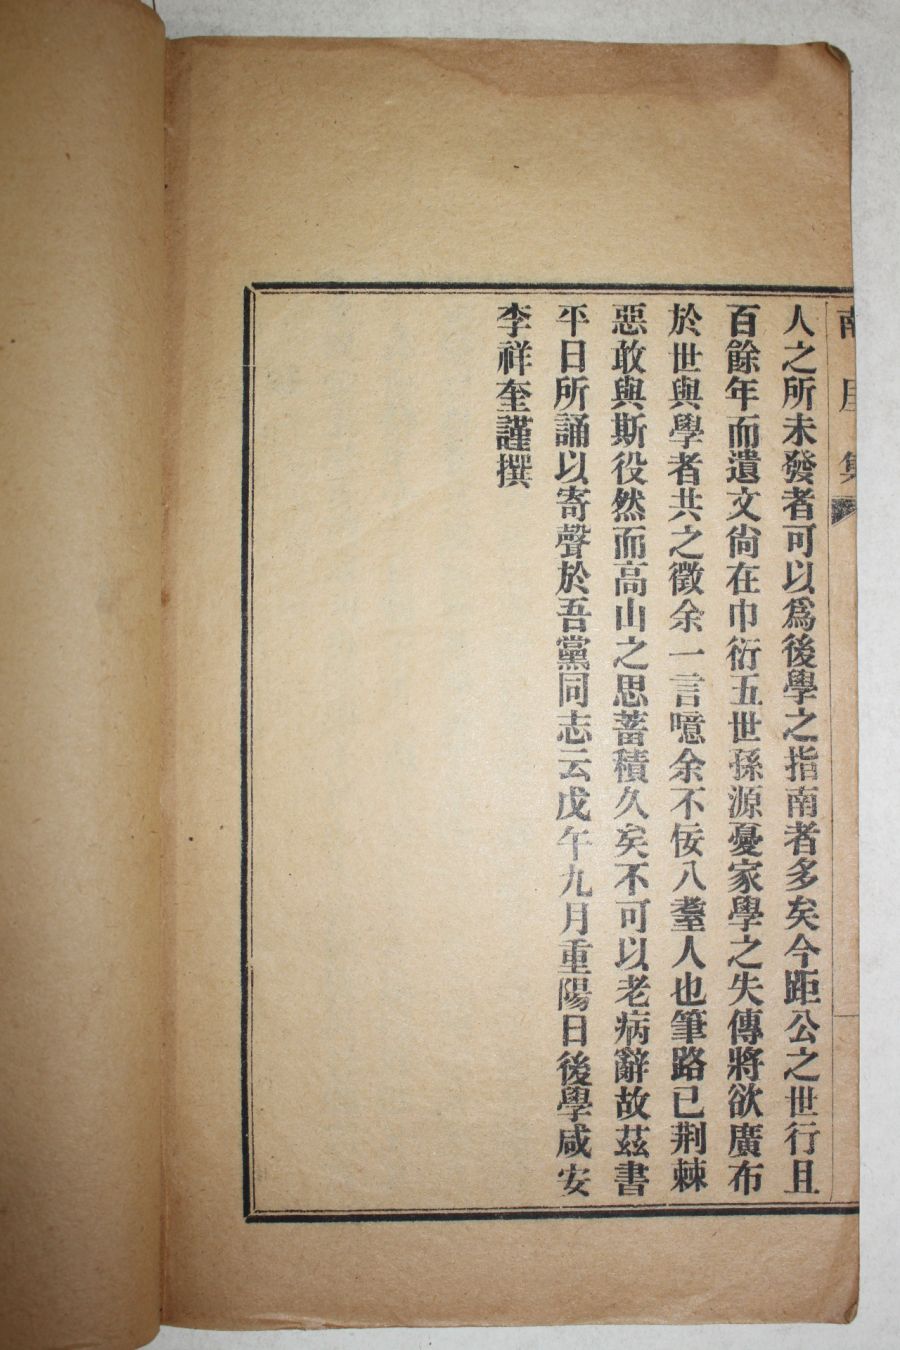 集
人之所未發者可以爲後學之指南者多矣今距公之世行且
百餘年而遺文尙在巾衍五世孫源憂家學之失傳將欲廣布
於世與學者共之徵余一言噫余不佞八耋人也筆路已荆棘
惡敢與斯役然而高山之思蓄積久矣不可以老病辭故茲書
平日所誦以寄聲於吾黨同志云戊午九月重陽日後學咸安
李祥奎謹撰